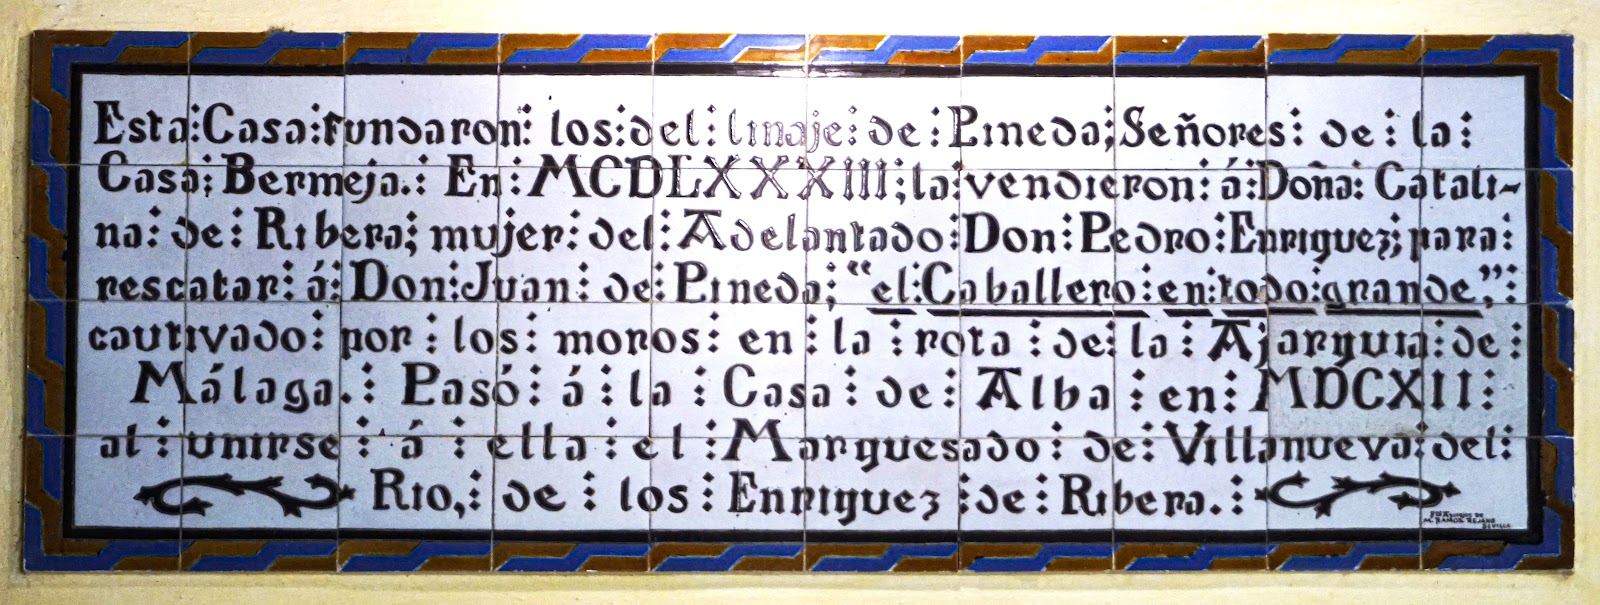 Esta:Casa:fundaron: los:del: linaje: de: Pineda; Señores: de: la:
Casa: Bermeja.: En: MCDLXXXXIII; la: vendieron: á: Doña: Catali-
na: de: Ribera; mujer: del: Adelantado: Don: Pedro: Enriquez; para:
rescatar: á: Don: Juan: de: Pineda; "el: Caballero: en: todo: grande,":
cautivado: por: los: moros: en: la: rota: de: la: Ajarquia: de:
Málaga.: Pasó: á: la: Casa: de: Alba: en: MDCXII:
al: unirse: á: ella: el: Marquesado: de: Villanueva: del:
Rio,: de: los: Enriquez: de: Ribera.:
M. RAMOS REJANO
SEVILLA